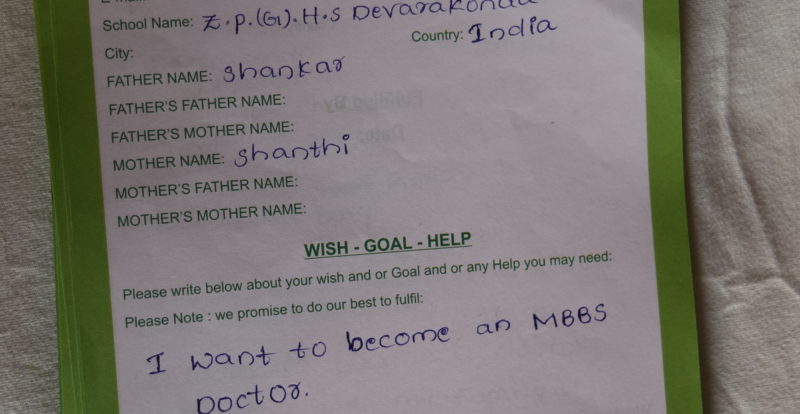 School Name: Z.P.(G).H.S Devarakonda
Country: India
City:
FATHER NAME: Shankar
FATHER'S FATHER NAME:
FATHER'S MOTHER NAME:
MOTHER NAME: Shanthi
MOTHER'S FATHER NAME:
MOTHER'S MOTHER NAME:
WISH - GOAL - HELP
Please write below about your wish and or Goal and or any Help you may need:
Please Note : we promise to do our best to fulfil:
I want to become an MBBS
Doctor.